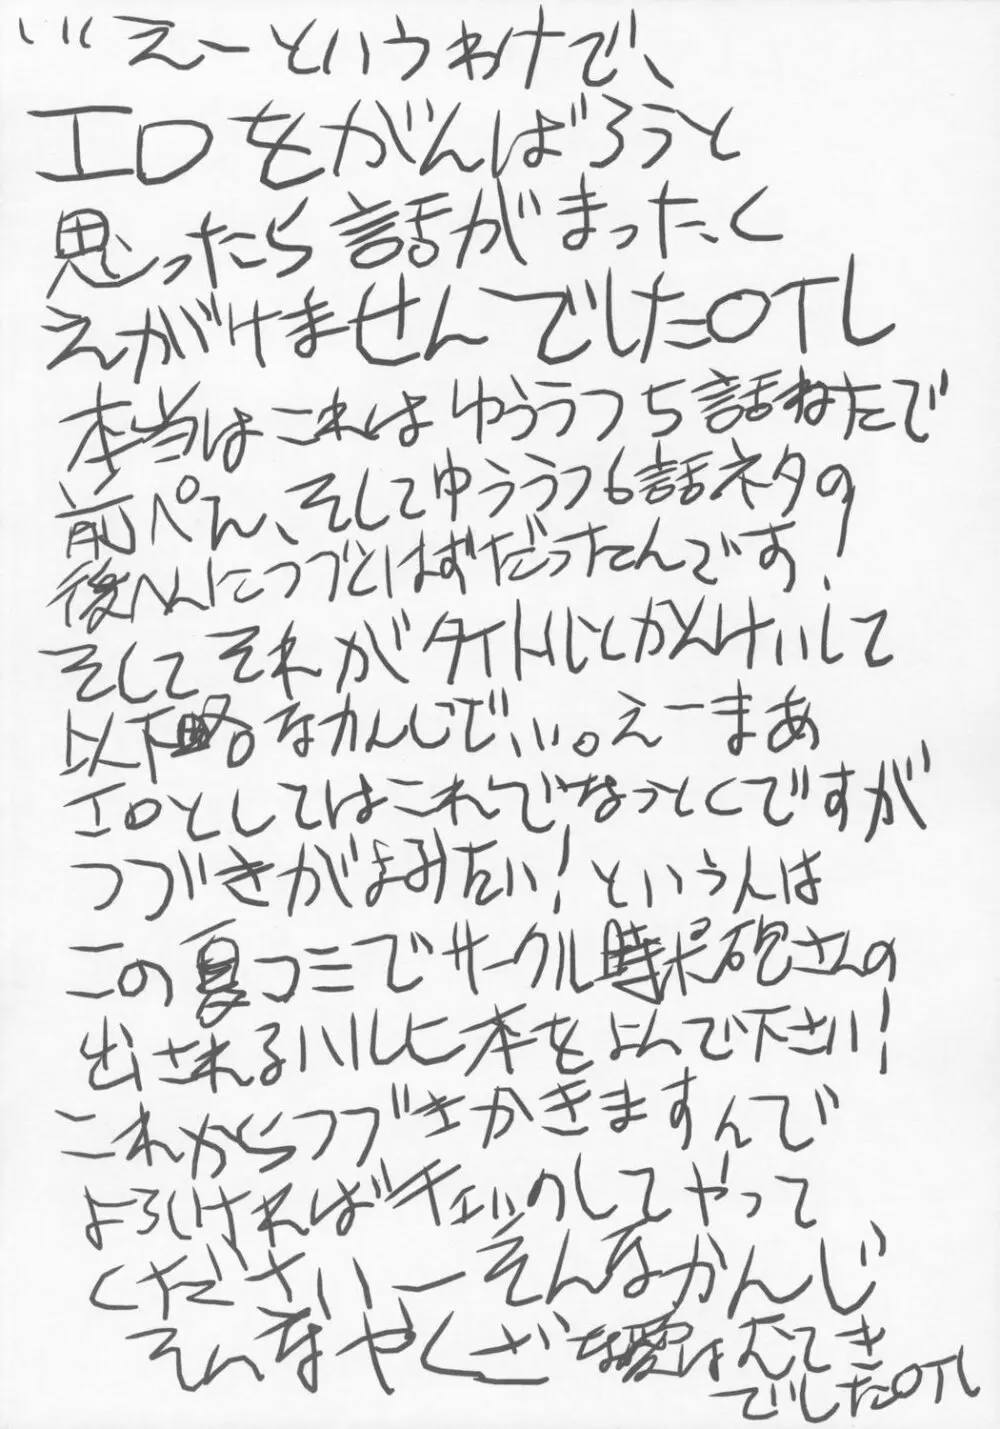 …えーというわけで、
エロをがんばろうと
思ったら話がまったく
えがけませんでしたOTL
本当はこれはゆううつ5話ねたで
前ぺん、そしてゆううつ6話ネタの
後へんにつづくはずだったんです!
そしてそれがタイトルとかんけいして
以下略。なかんじで…。えーまあ
エロとしてはこれでなっとくですが
つづきがよみたい!という人は
この夏コミでサークル砲さんの
出されるハルヒ本をよんで下さい!
これからつづきかきますんで
よろしければチェックしてやって
くださいーそんなかんじ
そんなやくざな愛はむてき
でしたOTL